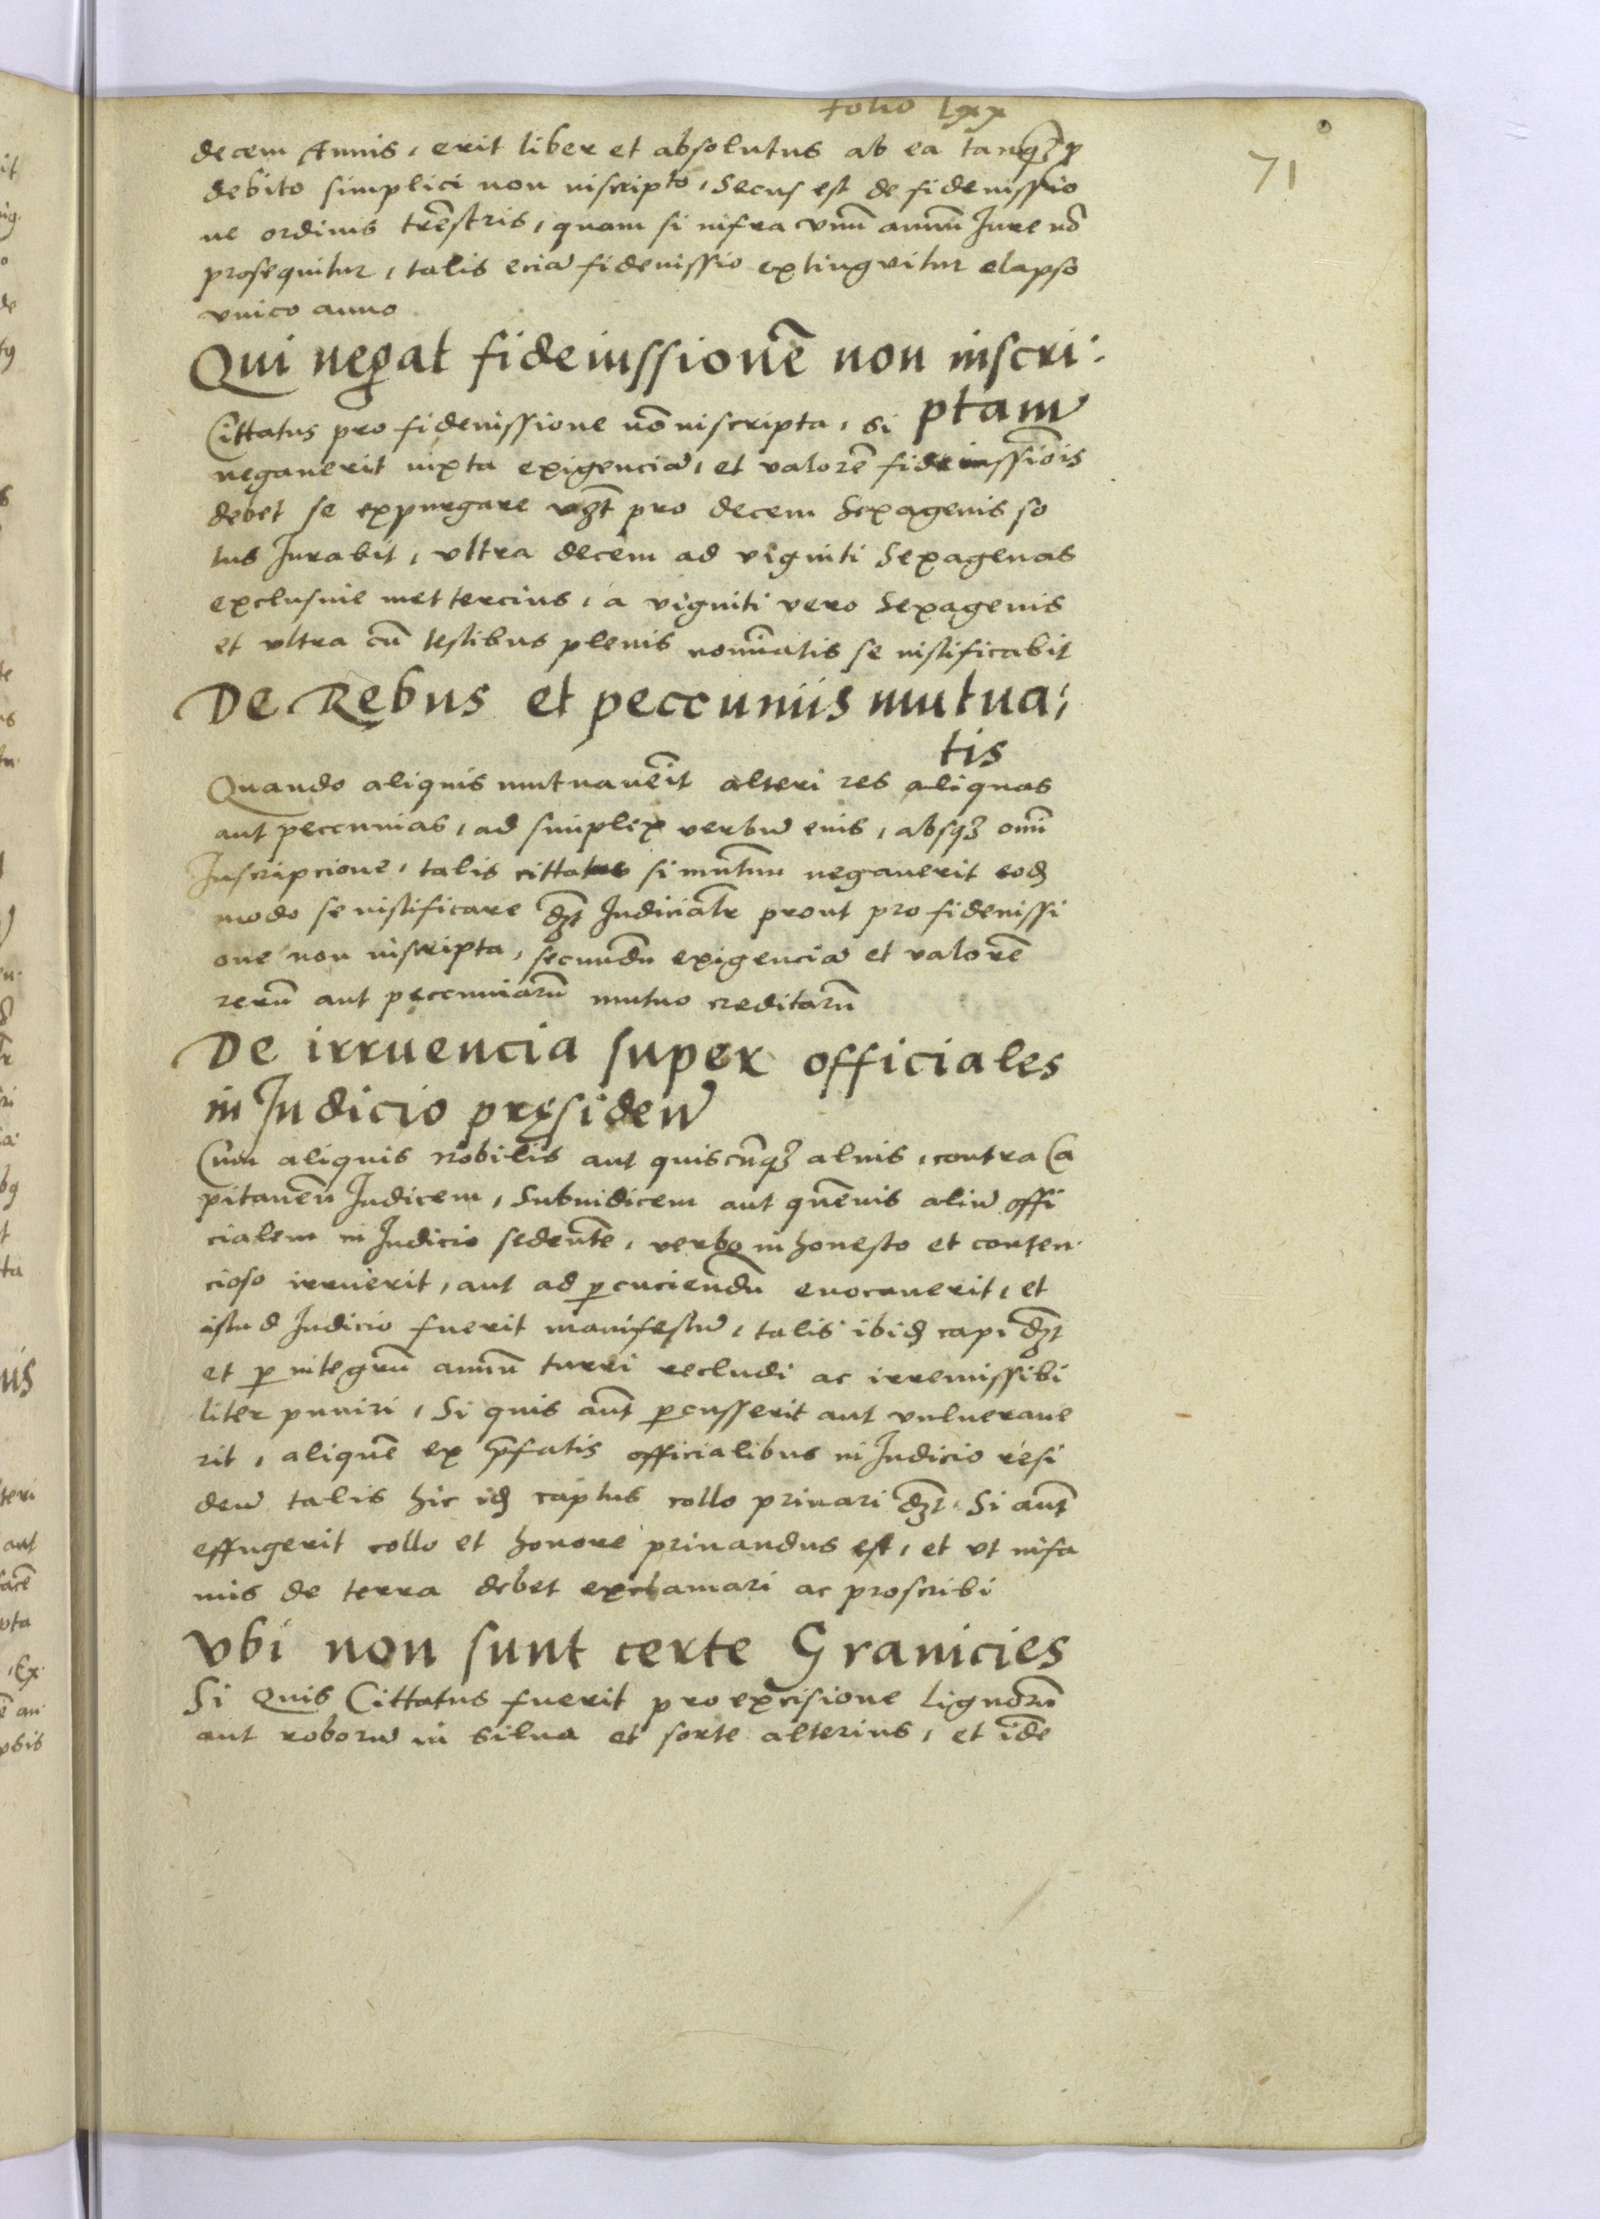 folio lxx
71
decem Annis, erit liber et absolutus ab ea tanqꝫ ꝓ
debito simplici non inscripto, Secus est de fideiussio
ne ordinis tr̃estris, quam si infra vnũ annũ Jure nõ
prosequitur, talis eciã fideiussio extingvitur elapso
vnico anno
Qui negat fideiussionẽ non inscri:
ptam
Cittatus pro fideiussione nõ inscripta, si
negauerit iuxta exigenciã, et valorẽ fideiussiõis
debet se expurgare vꝫt pro decem Sexagenis so
lus Jurabit, vltra decem ad viginti Sexagenas
exclusiue mettercius, a viginti vero Sexagenis
et vltra cũ testibus plenis nomĩatis se iustificabit
De Rebus et peccuniis mutua:
tis
Quando aliquis mutuauẽit alteri res aliquas
aut peccunias, ad simplex verbũ eius, absqꝫ omĩ
Inscripcione, talis cittatus si mutuũ negauerit eoď
modo se iustificare dꝫt Judicialr̃ prout pro fideiussi
one non inscripta, secundũ exigenciã et valorẽ
rerũ aut peccuniarũ mutuo creditarũ
De irruencia super officiales
in Judicio pręsideñ
Cum aliquis nobilis aut quiscũqꝫ alius, contra Ca
pitaneũ Judicem, Subiudicem aut quẽuis aliũ offi
cialem in Judicio sedentẽ, verbo inhonesto et conten
cioso irruerit, aut ad ꝑcuciendũ euocauerit, et
istud Judicio fuerit manifestũ, talis ibiď capi dꝫt
et ꝑ integrũ annũ turri recludi ac irremissibi
liter puniri, Si quis aũt ꝑcusserit aut vulneraue
rit, aliquẽ ex p̃fatis officialibus in Judicio resi
deñ talis hic iď captus collo priuari dꝫt, Si aũt
effugerit collo et honore priuandus est, et vt infa
mis de terra debet exclamari ac proscribi
Vbi non sunt certe Granicies
Si Quis Cittatus fuerit pro excisione lignorũ
aut roborũ in silua et sorte alterius, et idẽ